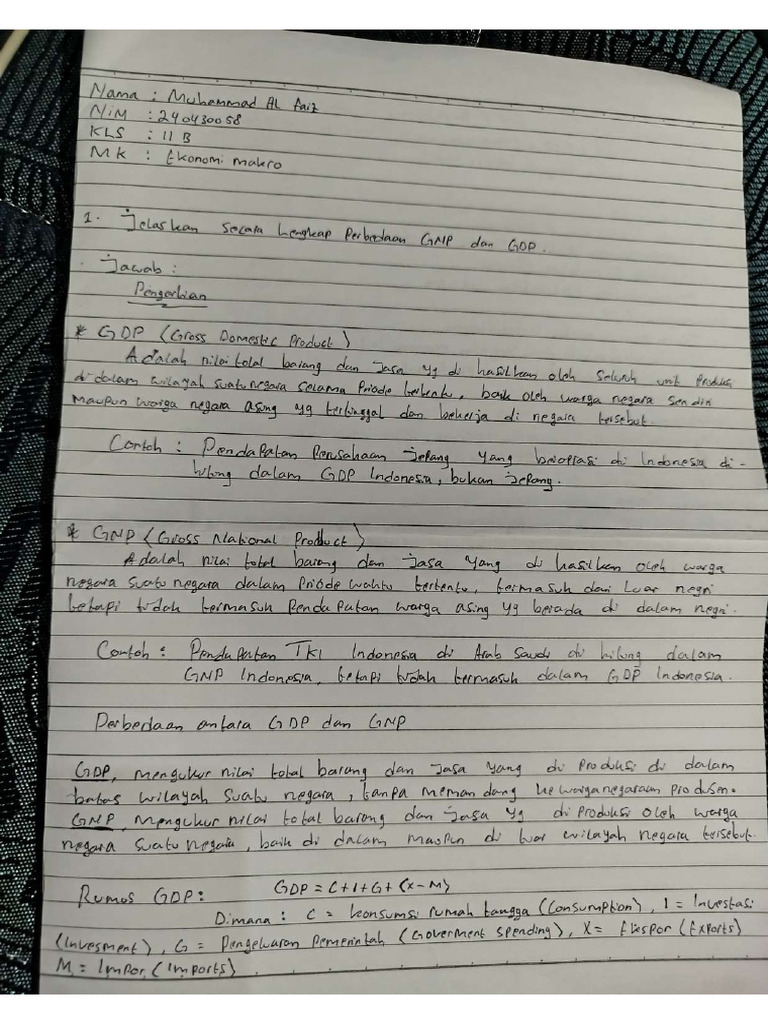 Nama : Muhammad AL faiz
NiM : 240430058
KLS : 11 B
MK : Ekonomi makro
1. Jelaskan secara lengkap Perbedaan GNP dan GDP.
Jawab :
Pengertian
* GDP (Gross Domestic Product)
Adalah nilai total barang dan Jasa yg di hasilkan oleh Seluruh unit Produksi
didalam wilayah suatu negara selama Priode tertentu, baik oleh warga negara sendiri
maupun warga negara asing yg tertinggal dan bekerja di negara tersebut.
Contoh : Pendapatan Perusahaan Jepang yang beroprasi di Indonesia di-
hitung dalam GDP Indonesia, bukan Jepang.
* GNP (Gross National Product)
Adalah nilai total barang dan Jasa yang di hasilkan oleh warga
negara suatu negara dalam Priode waktu tertentu, termasuk dari luar negri
tetapi tidak termasuk Pendapatan warga asing yg berada di dalam negri.
Contoh : Pendapatan TKI Indonesia di Arab Saudi di hitung dalam
GNP Indonesia, tetapi tidak termasuk dalam GDP Indonesia.
Perbedaan antara GDP dan GNP
GDP, mengukur nilai total barang dan Jasa yang di Produksi di dalam
batas wilayah suatu negara, tanpa memandang kewarganegaraan Produsen.
GNP, mengukur nilai total barang dan Jasa yg diProduksi oleh warga
negara suatu negara, baik di dalam maupun di luar wilayah negara tersebut.
Rumos GDP: GDP = C+I+G+(X-M)
Dimana : C = konsumsi rumah tangga (Consumption), I = Investasi
(Invesment), G = Pengeluaran Pemerintah (Goverment Spending), X = Ekspor (Exports)
M = Impor (Imports)